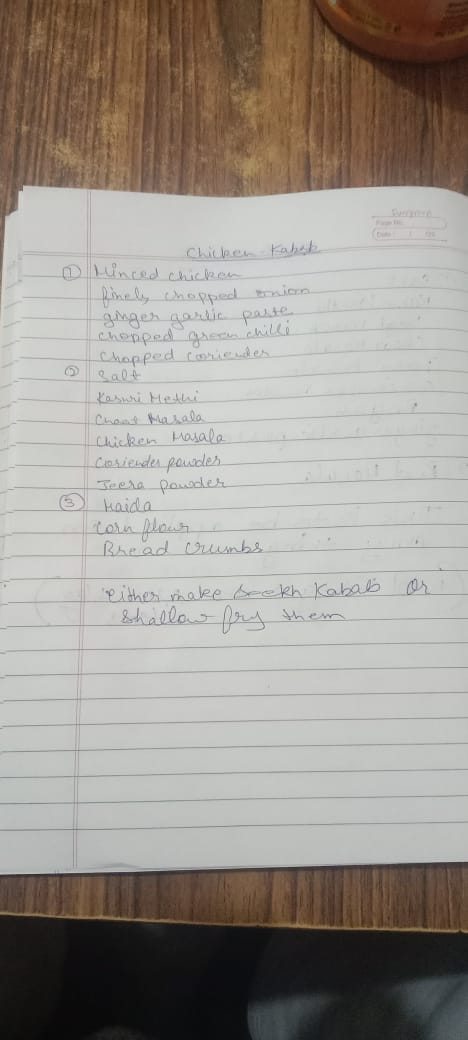 Page No.
Date: / /20
Chicken Kabab
① Minced chicken
finely chopped onion
ginger garlic paste
chopped green chilli
Chopped Coriender
② Salt
Kasuri Methi
Chaat Masala
Chicken Masala
Coriender powder
Jeera powder
③ Maida
Corn flour
Bread crumbs
either make Seekh Kabab or
Shallow fry them